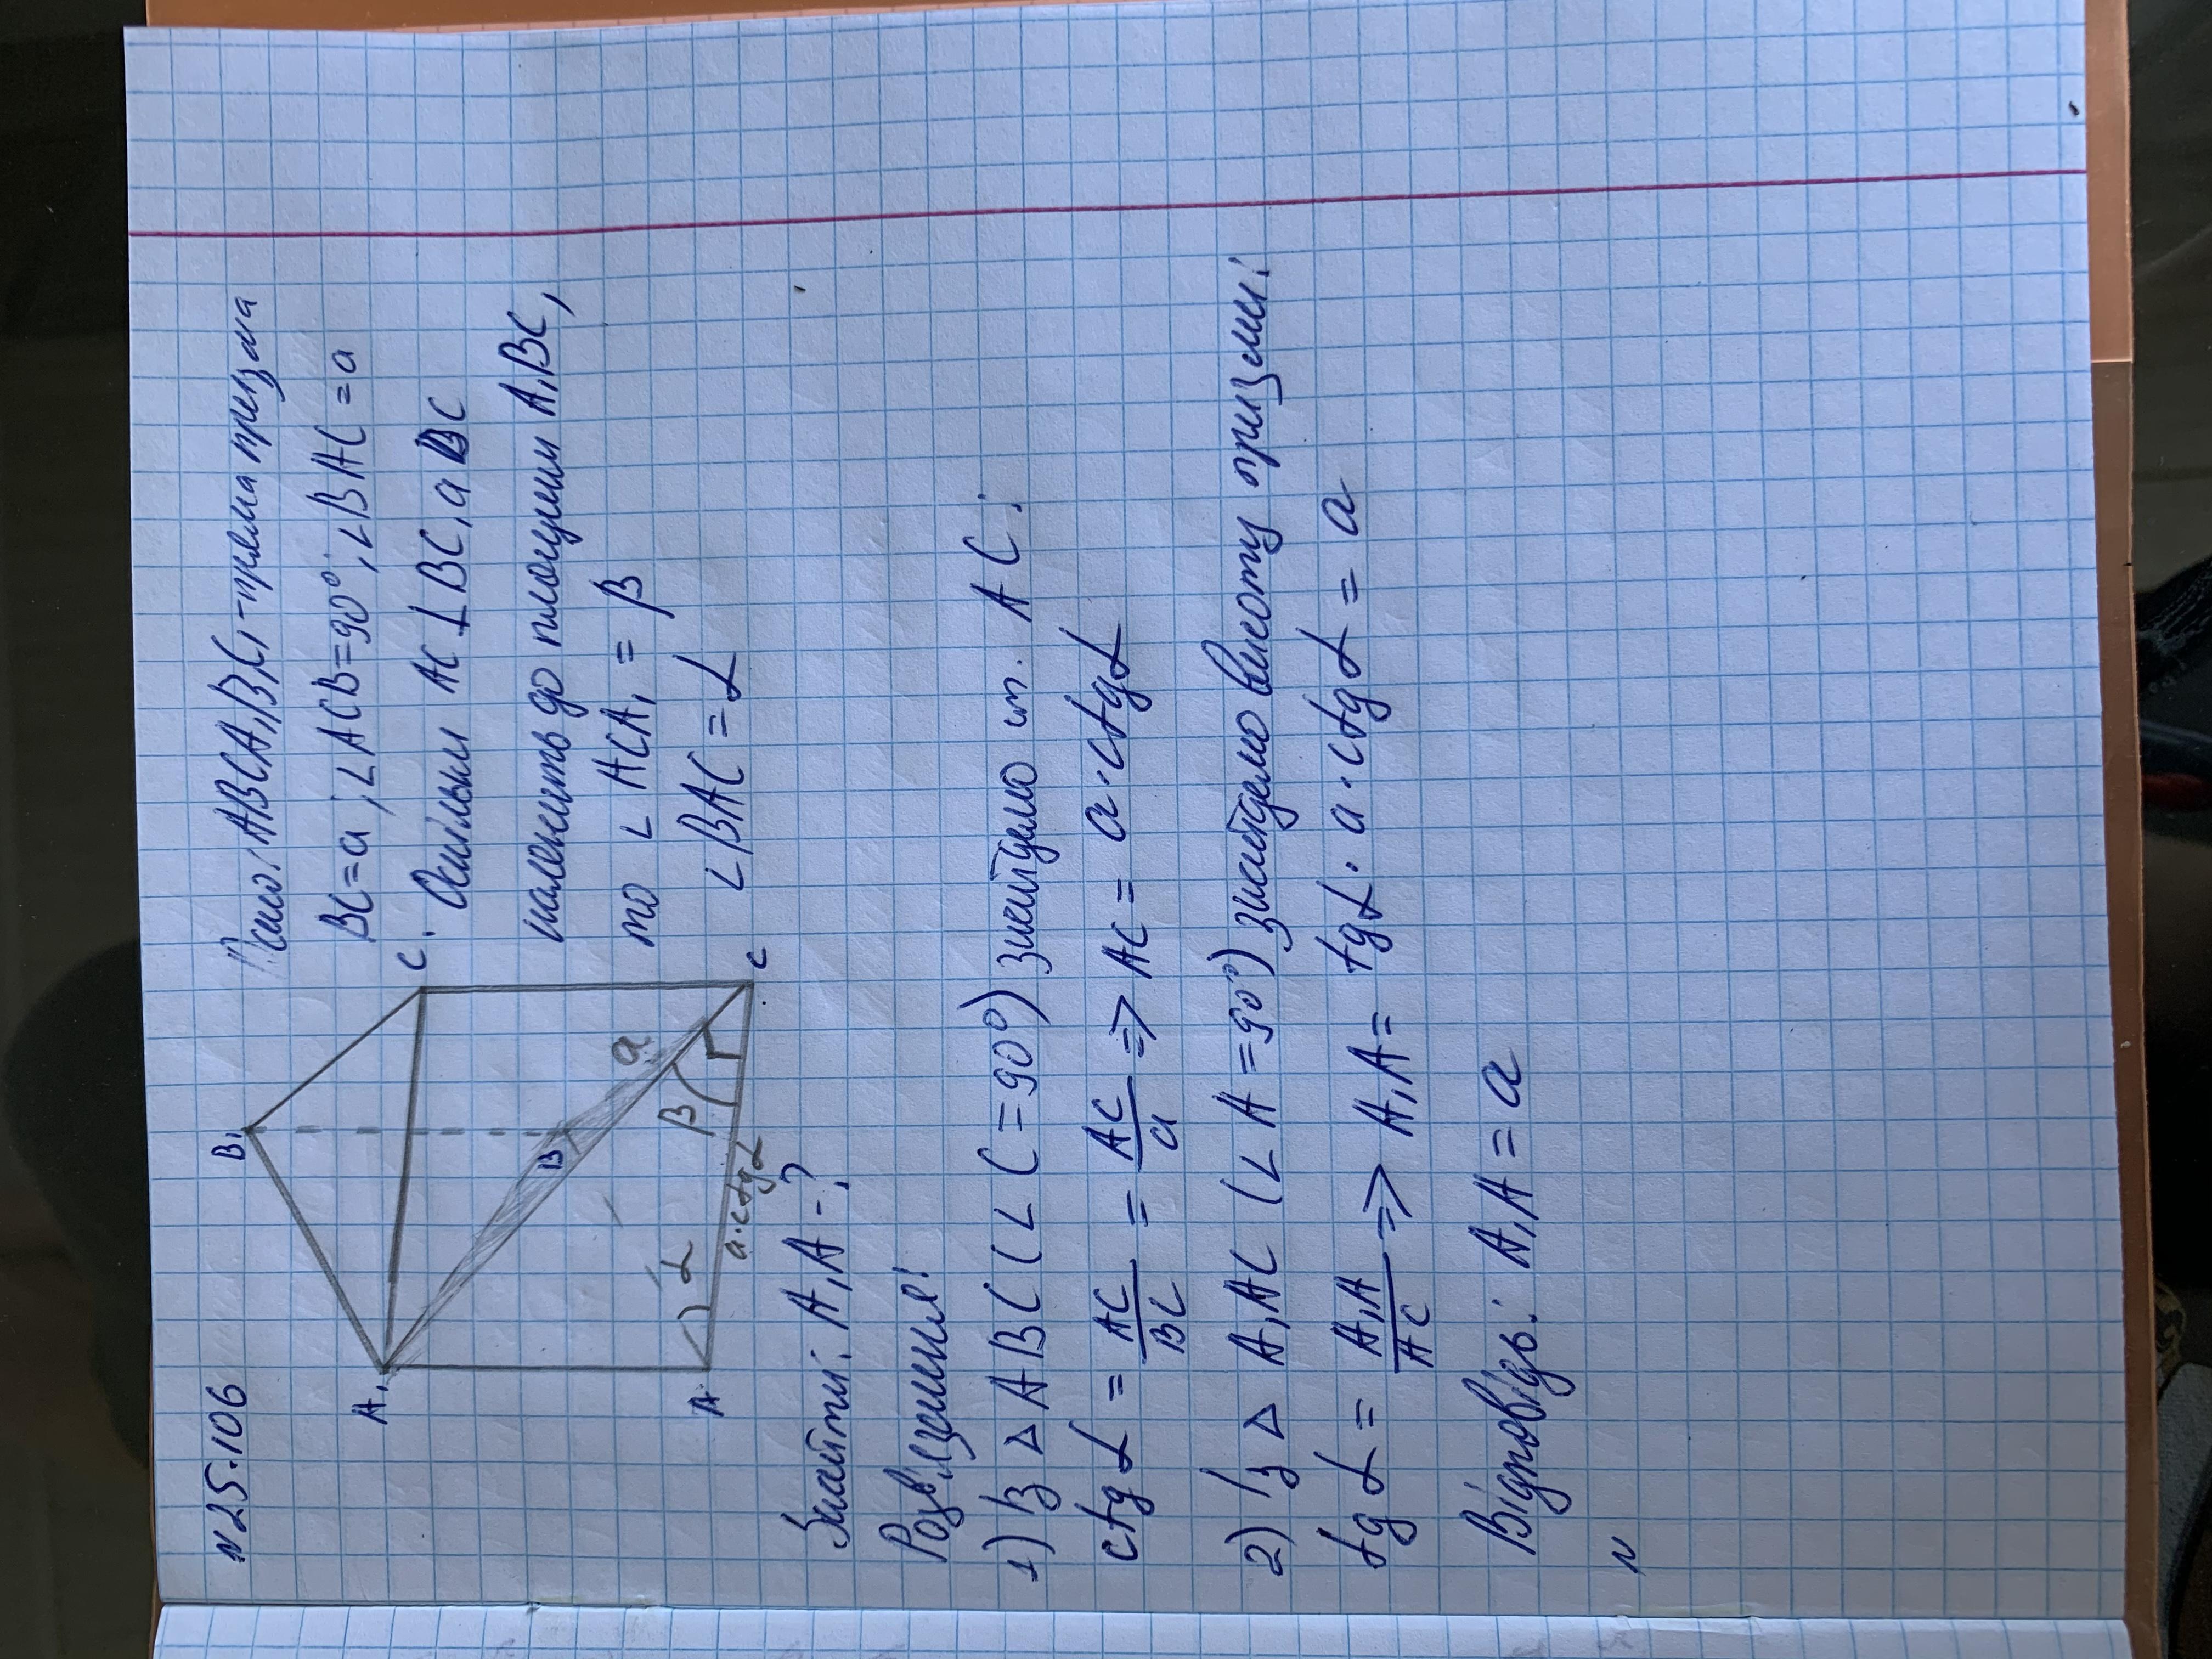 N 25.106
B₁
A₁
C₁
B
a
β
α
A
C
a·ctgα
Дано: ABCA₁B₁C₁ - пряма призма
BC=a; ∠ACB=90°; ∠BAC=a
Оскільки AC ⊥ BC, а BC
належить до площини A₁BC,
то ∠ACA₁ = β
∠BAC = α
Знайти: A₁A - ?
Розв'язання:
1) Із △ABC (∠C=90°) знайдемо ст. AC:
ctg α = AC/BC = AC/a => AC = a·ctgα
2) Із △ A₁AC (∠A=90°) знайдемо висоту призми:
tg α = A₁A/AC => A₁A = tgα · a·ctgα = a
Відповідь: A₁A = a
N